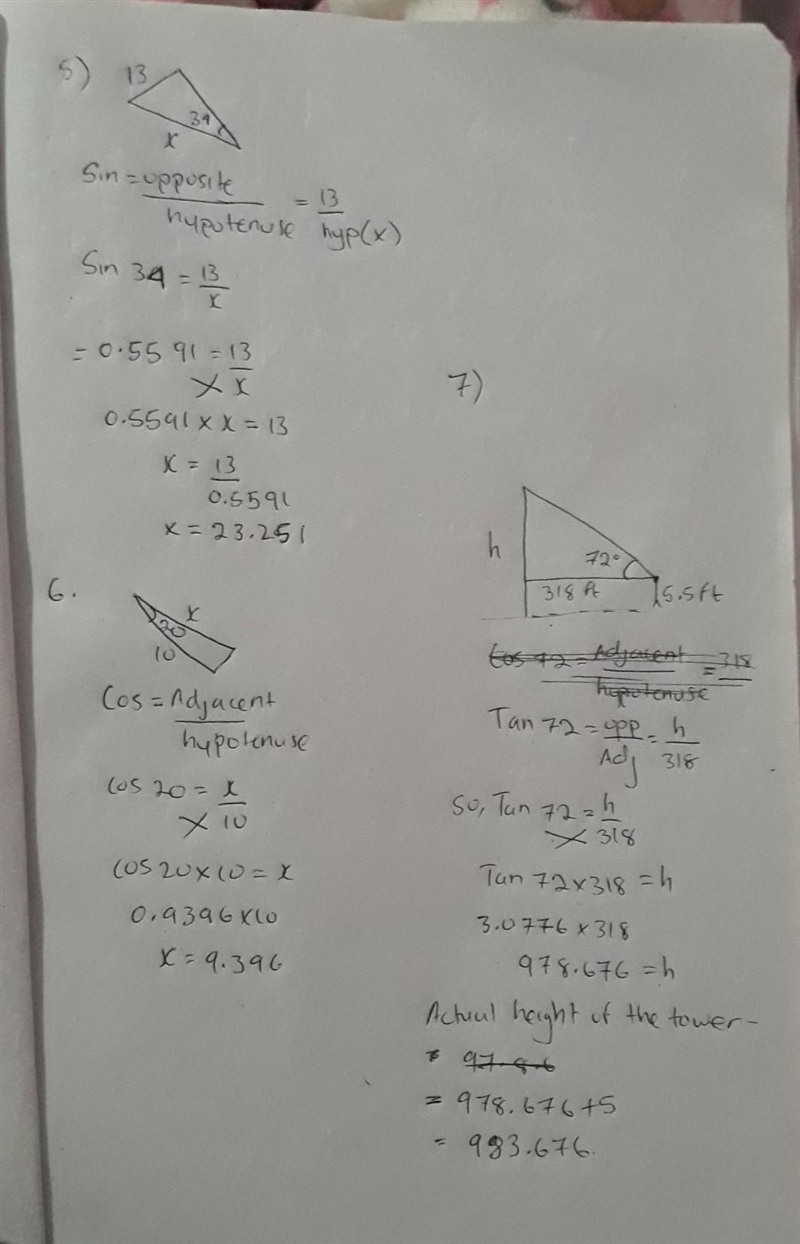 5)
13
34
x
Sin = opposite / hypotenuse = 13 / hyp(x)
Sin 34 = 13 / x
= 0.5591 = 13 / x
0.5591 × x = 13
x = 13 / 0.5591
x = 23.251
6.
x
20
10
Cos = Adjacent / hypotenuse
cos 20 = x / 10
cos 20 × 10 = x
0.9396 × 10
x = 9.396
7)
h
72°
318 ft
5.5ft
Cos 72 = Adjacent / hypotenuse = 318
Tan 72 = opp / Adj = h / 318
so, Tan 72 = h / 318
Tan 72 × 318 = h
3.0776 × 318
978.676 = h
Actual height of the tower -
= 97.8.6
= 978.676 + 5
= 983.676.